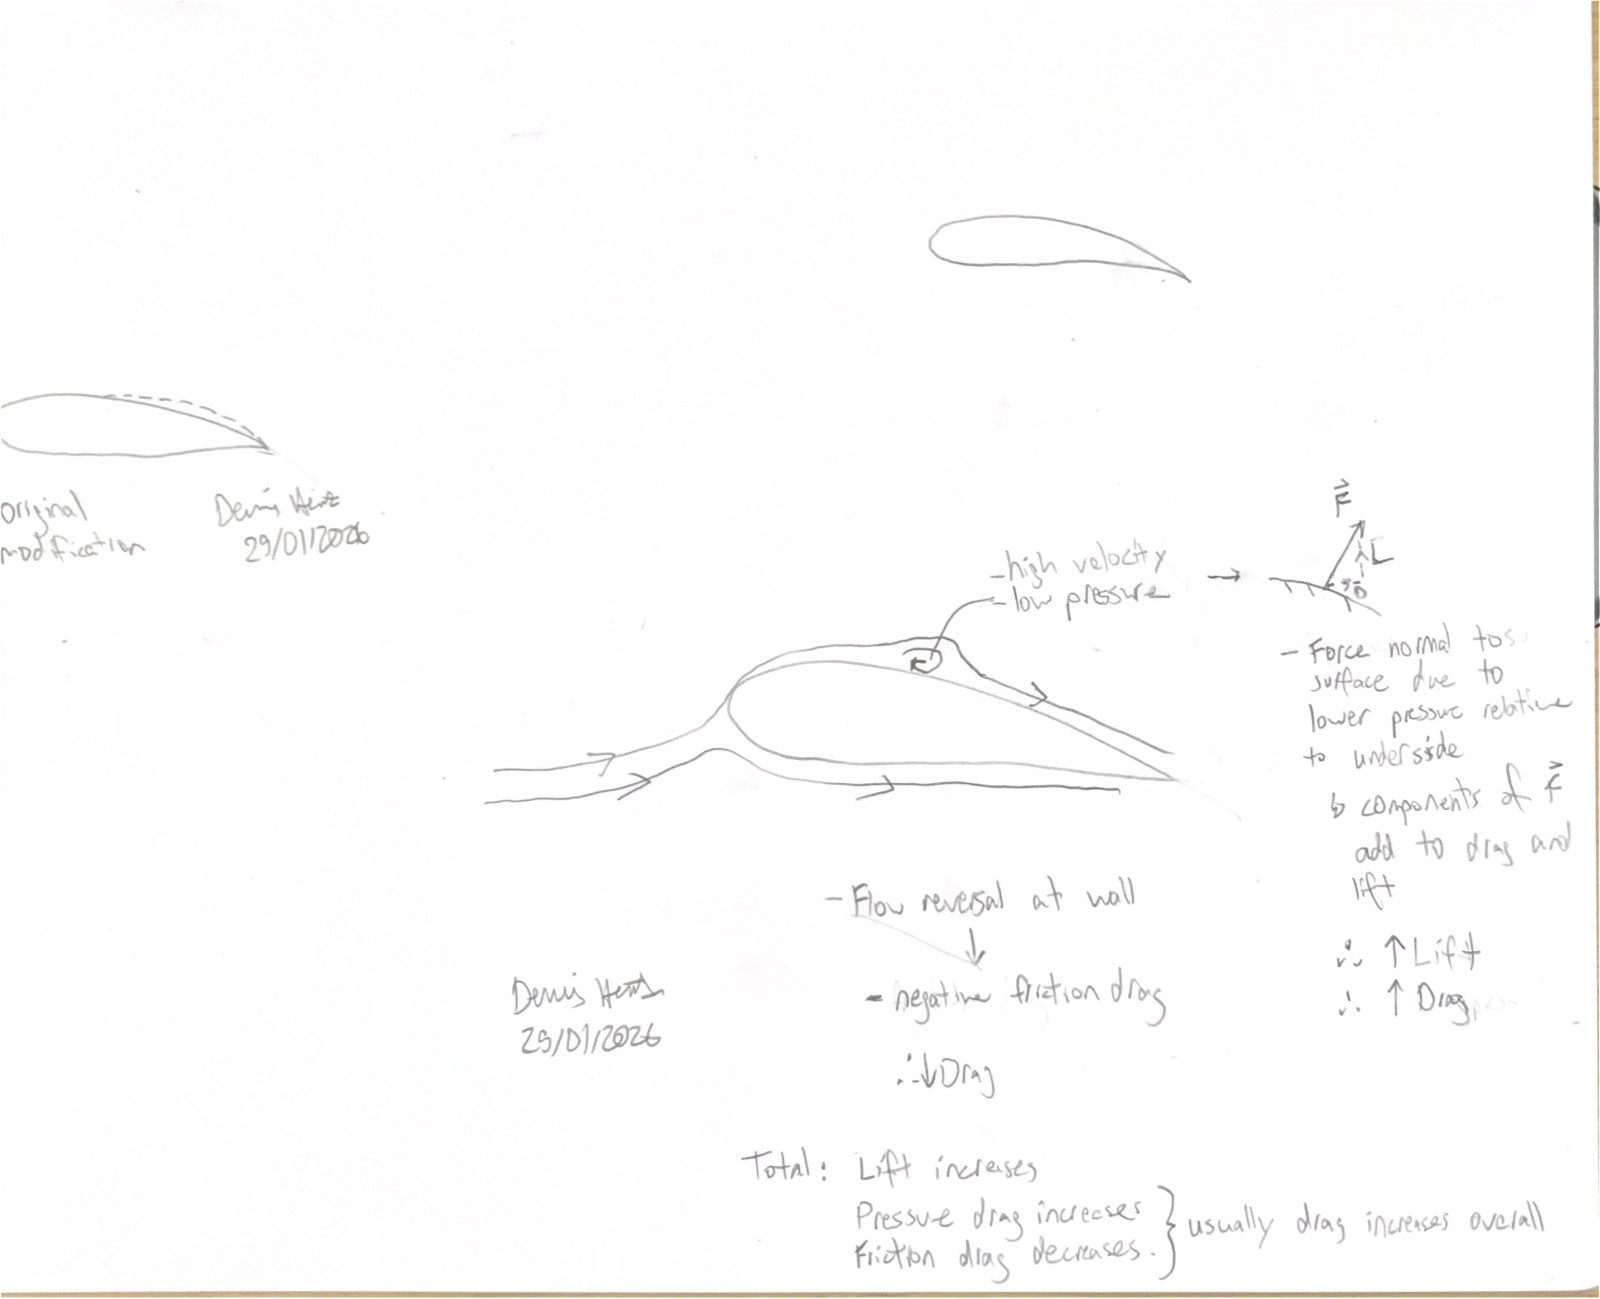 original
modification
Dennis
29/01/2026
- high velocity
- low pressure
→
F
L
D
- Force normal to
surface due to
lower pressure relative
to underside
↳ components of F
add to drag and
lift
∴ ↑ Lift
∴ ↑ Drag
- Flow reversal at wall
↓
- negative friction drag
∴ ↓ Drag
Dennis
29/01/2026
Total: Lift increases
Pressure drag increases
Friction drag decreases.
} usually drag increases overall